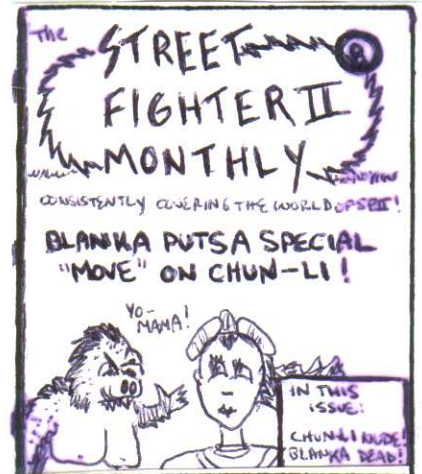 The
STREET
FIGHTER II
MONTHLY
CONSISTENTLY COVERING THE WORLD OF SFII!
BLANKA PUTS A SPECIAL
"MOVE" ON CHUN-LI!
YO-
MAMA!
IN THIS
ISSUE:
CHUN-LI NUDE!
BLANKA DEAD!